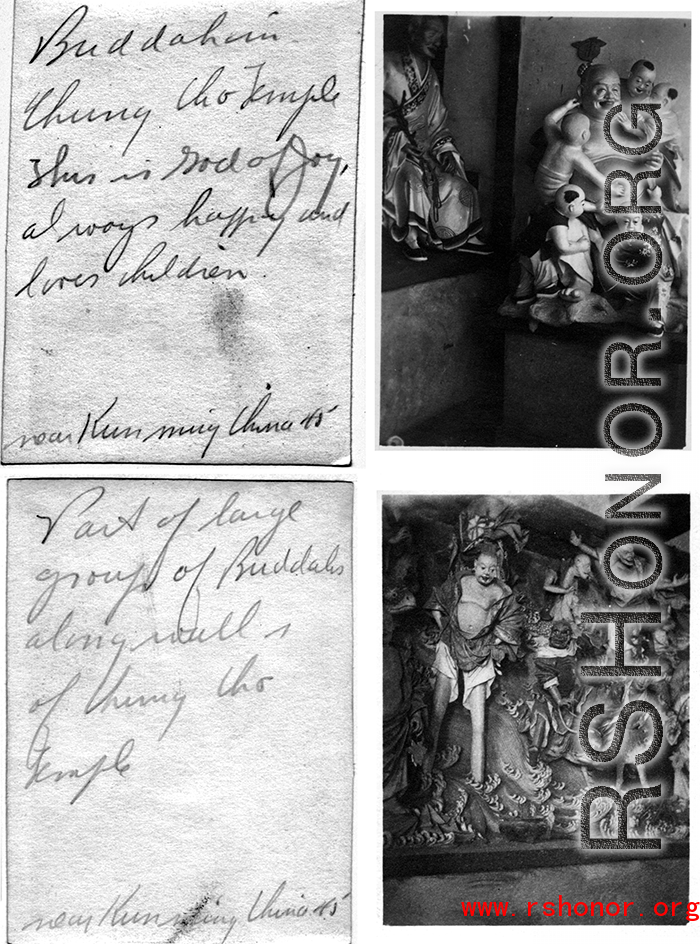 Buddah in
Chung Cho Temple
This is God of Joy,
always happy and
loves children.
near Kunming China 45
Part of large
group of Buddahs
along walls
of Chung Cho
Temple
near Kunming China 45
RSHONOR.ORG
www.rshonor.org